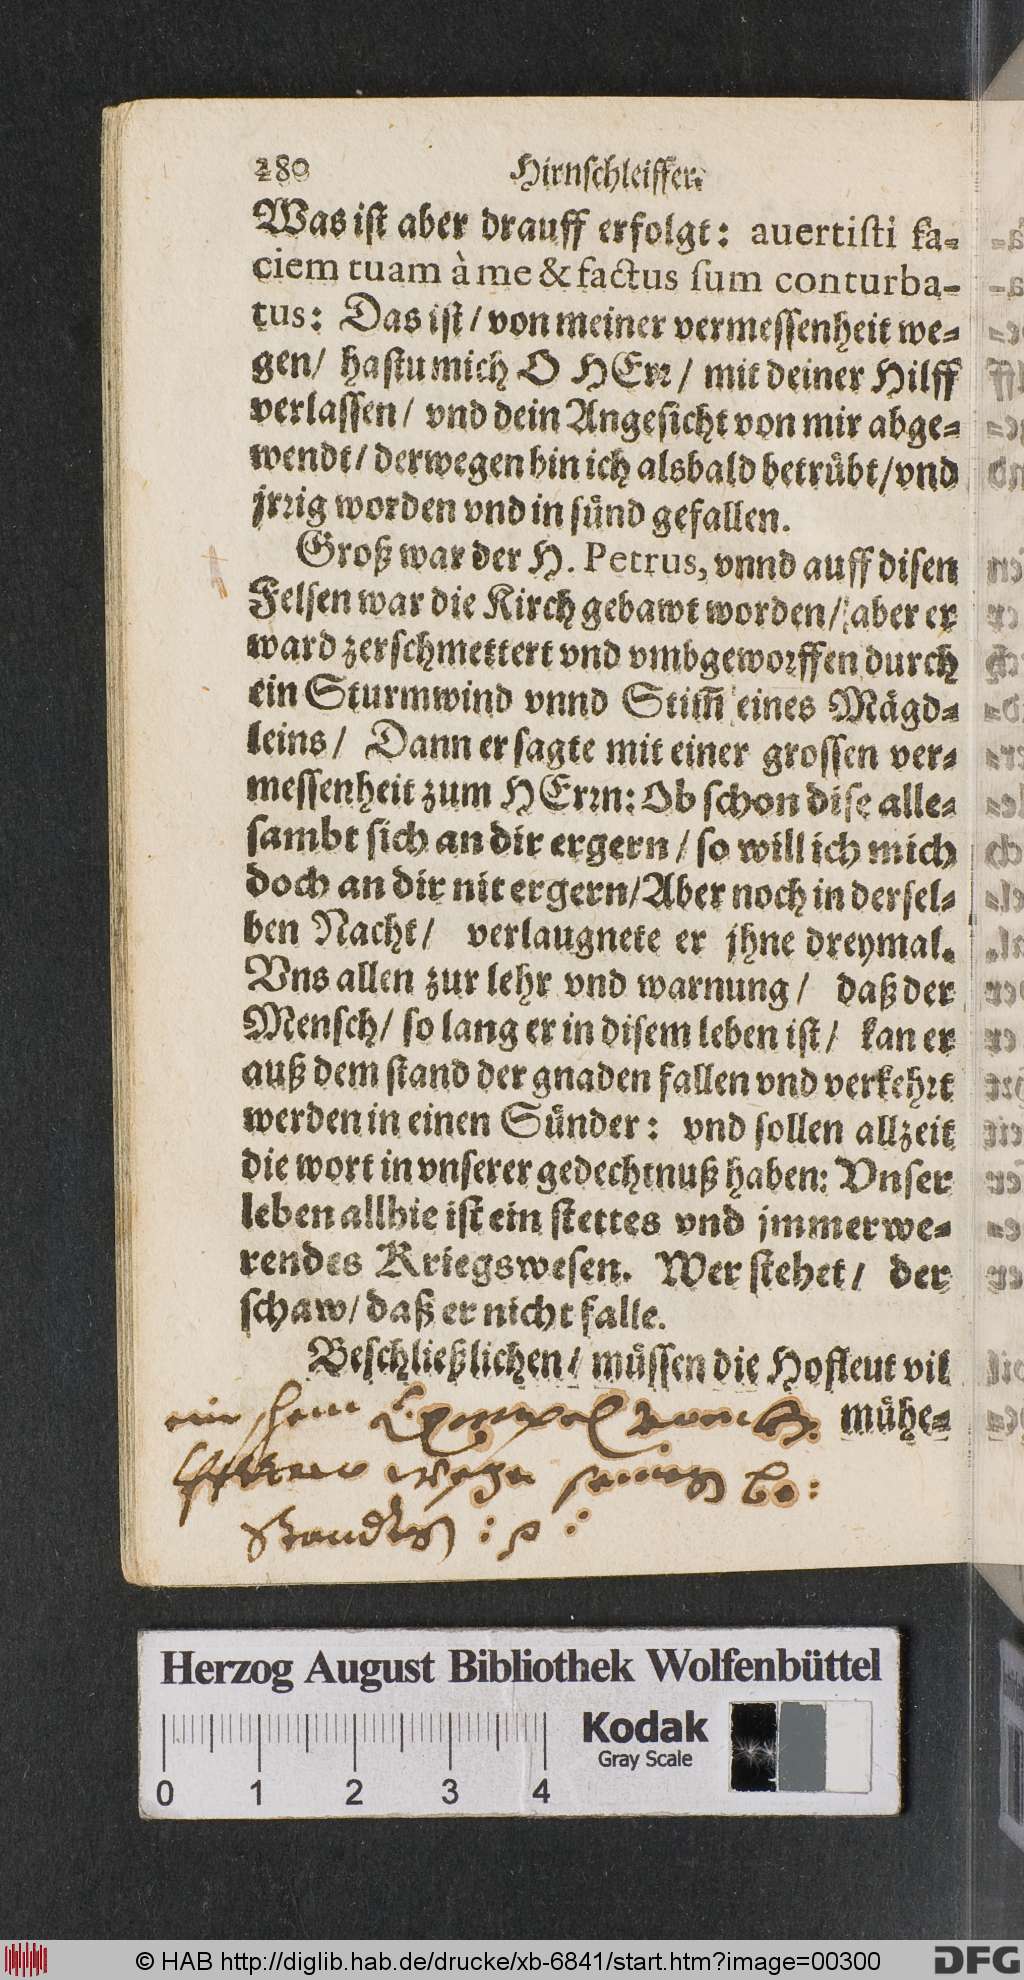 280 Hirnschleiffer.
Was ist aber drauff erfolgt: auertisti fa-
ciem tuam à me & factus sum conturba-
tus: Das ist / von meiner vermessenheit we-
gen / hastu mich O HErr / mit deiner Hilff
verlassen / vnd dein Angesicht von mir abge-
wendt / derwegen bin ich alsbald betrübt / vnd
jrrig worden vnd in sünd gefallen.
Groß war der H. Petrus, vnnd auff disen
Felsen war die Kirch gebawt worden / aber er
ward zerschmettert vnd vmbgeworffen durch
ein Sturmwind vnnd Stim̃ eines Mägd-
leins / Dann er sagte mit einer grossen ver-
messenheit zum HErrn: Ob schon dise alle-
sambt sich an dir ergern / so will ich mich
doch an dir nit ergern / Aber noch in dersel-
ben Nacht / verlaugnete er jhne dreymal.
Vns allen zur lehr vnd warnung / daß der
Mensch / so lang er in disem leben ist / kan er
auß dem stand der gnaden fallen vnd verkehrt
werden in einen Sünder: vnd sollen allzeit
die wort in vnserer gedechtnuß haben: Vnser
leben allhie ist ein stettes vnd jmmerwe-
rendes Kriegswesen. Wer stehet / der
schaw / daß er nicht falle.
Beschließlichen / müssen die Hofleut vil
mühe-
ein Exempel
wegen seines be:
standes
Herzog August Bibliothek Wolfenbüttel
Kodak
Gray Scale
0 1 2 3 4
© HAB http://diglib.hab.de/drucke/xb-6841/start.htm?image=00300
DFG